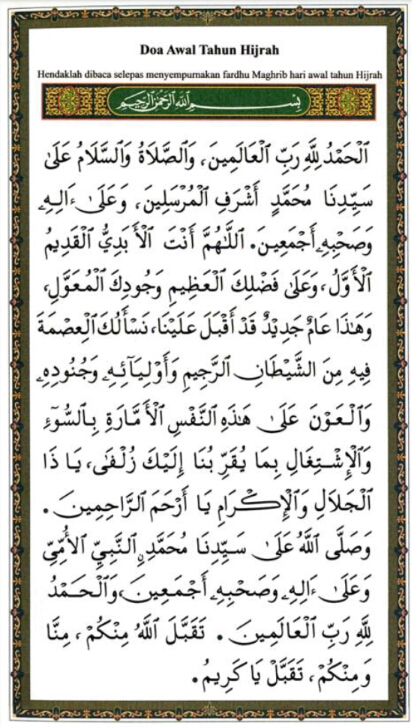 Doa Awal Tahun Hijrah
Hendaklah dibaca selepas menyempurnakan fardhu Maghrib hari awal tahun Hijrah
بِسْمِ اللَّهِ الرَّحْمَٰنِ الرَّحِيمِ
الْحَمْدُ لِلَّهِ رَبِّ الْعَالَمِينَ، وَالصَّلَاةُ وَالسَّلَامُ عَلَىٰ
سَيِّدِنَا مُحَمَّدٍ أَشْرَفِ الْمُرْسَلِينَ، وَعَلَىٰ ءَالِهِۦ
وَصَحْبِهِۦ أَجْمَعِينَ. اللَّهُمَّ أَنْتَ الْأَبَدِيُّ الْقَدِيمُ
الْأَوَّلُ، وَعَلَىٰ فَضْلِكَ الْعَظِيمِ وَجُودِكَ الْمُعَوَّلِ،
وَهَٰذَا عَامٌ جَدِيدٌ قَدْ أَقْبَلَ عَلَيْنَا، نَسْأَلُكَ الْعِصْمَةَ
فِيهِ مِنَ الشَّيْطَانِ الرَّجِيمِ وَأَوْلِيَآئِهِۦ وَجُنُودِهِۦ
وَالْعَوْنَ عَلَىٰ هَٰذِهِ النَّفْسِ الْأَمَّارَةِ بِالسُّوٓءِ
وَالْإِشْتِغَالِ بِمَا يُقَرِّبُنَا إِلَيْكَ زُلْفَىٰ، يَا ذَا
الْجَلَالِ وَالْإِكْرَامِ يَا أَرْحَمَ الرَّاحِمِينَ.
وَصَلَّى اللَّهُ عَلَىٰ سَيِّدِنَا مُحَمَّدٍ النَّبِيِّ الْأُمِّيِّ
وَعَلَىٰ ءَالِهِۦ وَصَحْبِهِۦ أَجْمَعِينَ، وَالْحَمْدُ
لِلَّهِ رَبِّ الْعَالَمِينَ. تَقَبَّلَ اللَّهُ مِنْكُمْ، مِنَّا
وَمِنْكُمْ، تَقَبَّلْ يَا كَرِيمُ.